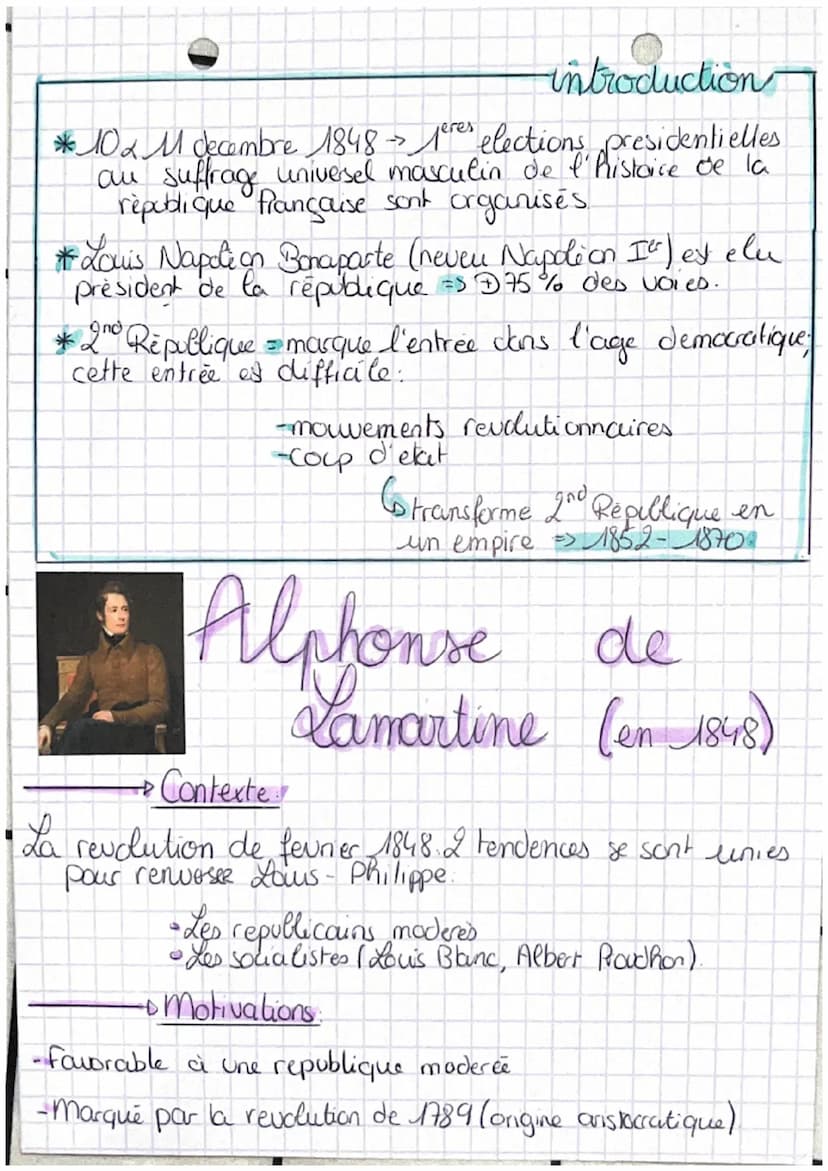 introduction
* 10 & 11 decembre 1848 → 1ères elections presidentielles
au suffrage universel masculin de l'histoire de la
rèpublique française sont organisés
* Louis Napoléon Bonaparte (neveu Napoléon Ier) est elu
président de la république => ⊕ 75% des voies.
* 2nd République = marque l'entrée dans l'age democratique;
cette entrée est difficile:
-mouvements revolutionnaires
-coup d'etat
↳ transforme 2nd République en
un empire => 1852-1870.
Alphonse de
Lamartine (en 1848)
→ Contexte:
La revolution de fevrier 1848. 2 tendences se sont unies
pour renverser Louis-Philippe.
• Les republicains moderés
• Les socialistes (Louis Blanc, Albert Proudhon).
→ Motivations:
-Favorable à une republique moderée
-Marqué par la revolution de 1789 (origine aristocratique)